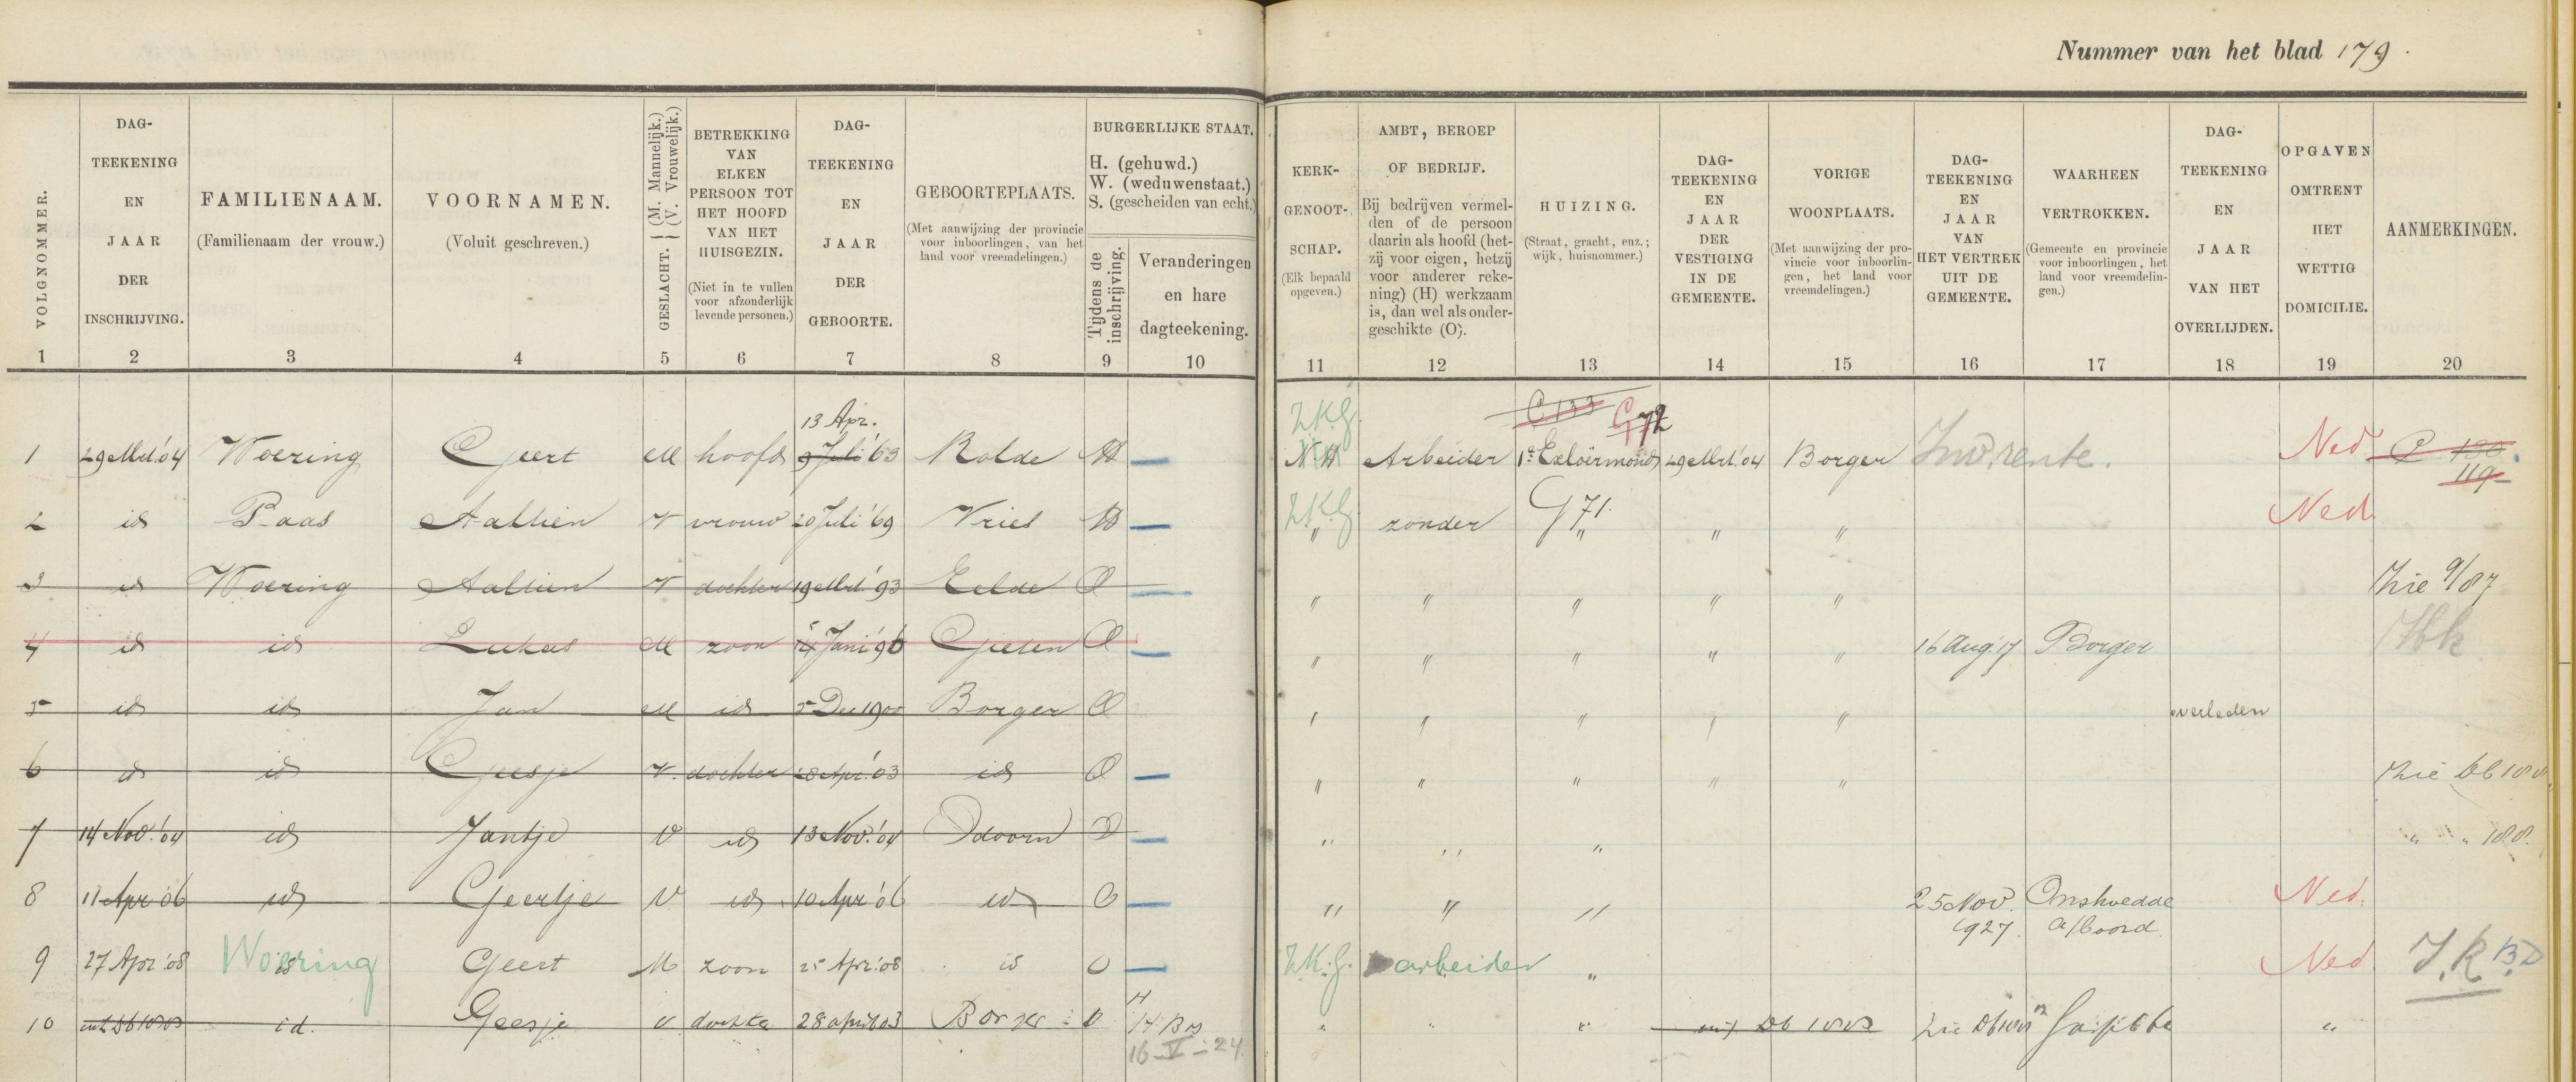 Nummer van het blad 179.
VOLGNOMMER.
DAG-
TEEKENING
EN
JAAR
DER
INSCHRIJVING.
FAMILIENAAM.
(Familienaam der vrouw.)
VOORNAMEN.
(Voluit geschreven.)
GESLACHT. (M. Mannelijk.) (V. Vrouwelijk.)
BETREKKING
VAN
ELKEN
PERSOON TOT
HET HOOFD
VAN HET
HUISGEZIN.
(Niet in te vullen
voor afzonderlijk
levende personen.)
DAG-
TEEKENING
EN
JAAR
DER
GEBOORTE.
GEBOORTEPLAATS.
(Met aanwijzing der provincie
voor inboorlingen, van het
land voor vreemdelingen.)
BURGERLIJKE STAAT.
H. (gehuwd.)
W. (weduwenstaat.)
S. (gescheiden van echt.)
Tijdens de
inschrijving.
Veranderingen
en hare
dagteekening.
KERK-
GENOOT-
SCHAP.
(Elk bepaald
opgeven.)
AMBT, BEROEP
OF BEDRIJF.
Bij bedrijven vermel-
den of de persoon
daarin als hoofd (het-
zij voor eigen, hetzij
voor anderer reke-
ning) (H) werkzaam
is, dan wel als onder-
geschikte (O).
HUIZING.
(Straat, gracht, enz.;
wijk, huisnommer.)
DAG-
TEEKENING
EN
JAAR
DER
VESTIGING
IN DE
GEMEENTE.
VORIGE
WOONPLAATS.
(Met aanwijzing der pro-
vincie voor inboorlin-
gen, het land voor
vreemdelingen.)
DAG-
TEEKENING
EN
JAAR
VAN
HET VERTREK
UIT DE
GEMEENTE.
WAARHEEN
VERTROKKEN.
(Gemeente en provincie
voor inboorlingen, het
land voor vreemdelin-
gen.)
DAG-
TEEKENING
EN
JAAR
VAN HET
OVERLIJDEN.
OPGAVEN
OMTRENT
HET
WETTIG
DOMICILIE.
AANMERKINGEN.
1 2 3 4 5 6 7 8 9 10 11 12 13 14 15 16 17 18 19 20
13 Apr. Z.K.G. C 133 G 72
1 29 Mrt '04 Woering Geert M hoofd 9 Juli '63 Rolde H N H Arbeider 1e Exloërmond 29 Mrt '04 Borger Inv. rente. Ned C 130
119
2 id Paas Aaltien V vrouw 20 Juli '69 Vries H Z.K.G. " zonder G 71. " " " Ned
3 id Woering Aaltien V dochter 19 Mrt '93 Eelde O " " " " " Zie 9/87
4 id id Lukas M zoon 5 Juni '96 Gieten O " " " " " 16 Aug '17 Borger
5 id id Jan M id 5 Dec 1900 Borger O " " " " " overleden
6 id id Geesje V. dochter 28 Apr. '03 id O " " " " " Zie
7 14 Nov. '04 id Jantje V id 13 Nov. '04 Odoorn O " " " " " 188.
8 11 Apr '06 id Geertje V id 10 Apr '06 id O " " " 25 Nov. Onstwedde Ned.
1927. a/boord.
9 27 Apr '08 id Woering Geert M zoon 25 Apr '08 id O Z.K.G. arbeider " Ned J.K BD
10 id. Geesje V dochter 28 april 03 Borger O H " " " "
16-V-24